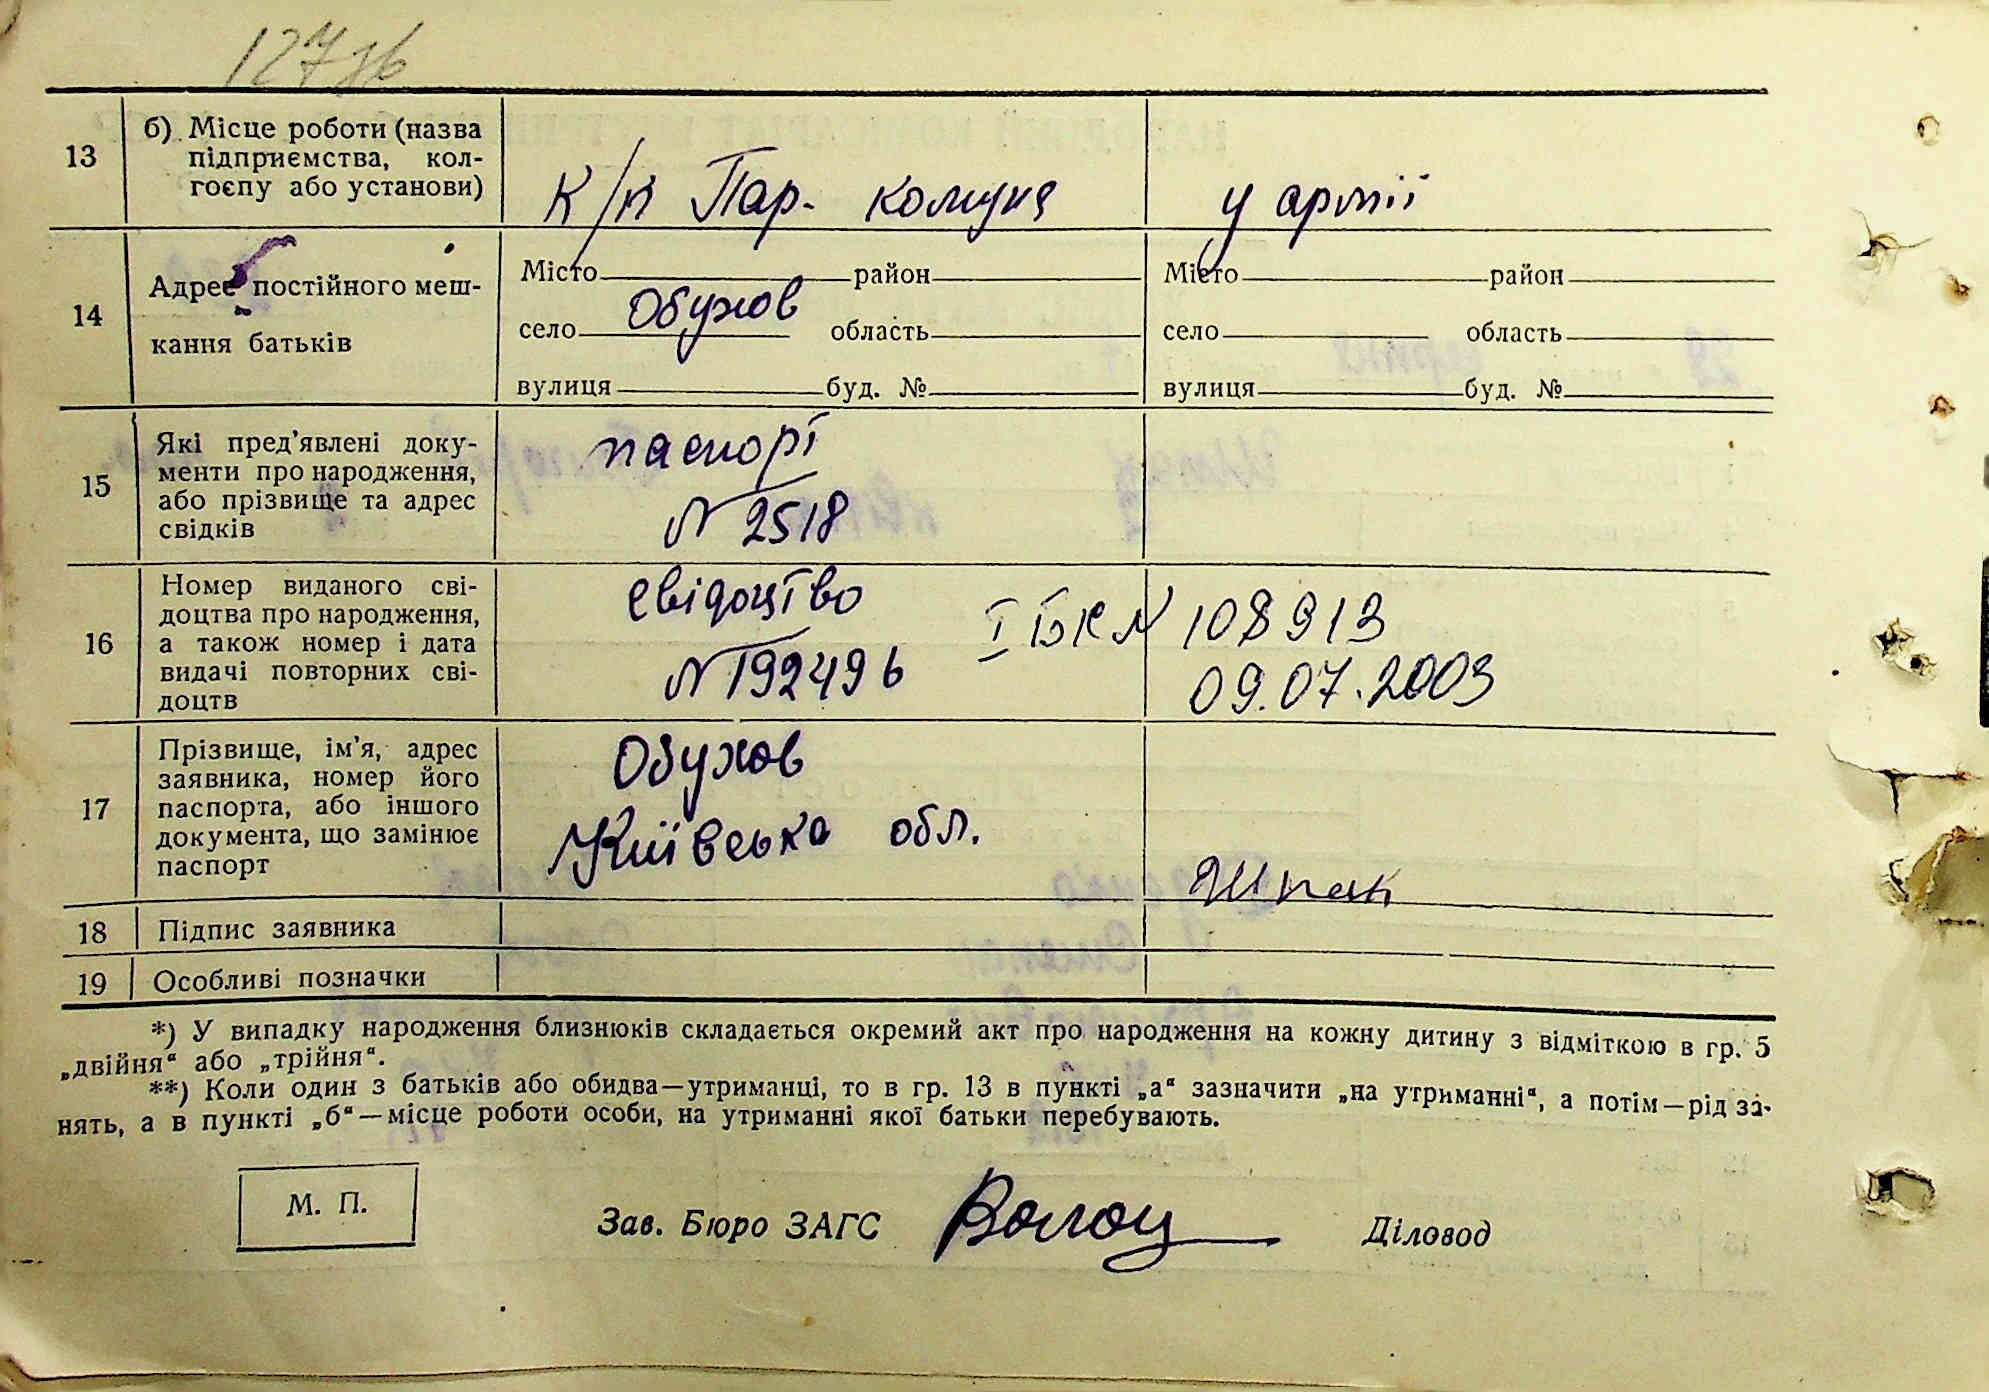 127зв
13
б) Місце роботи (назва
підприємства, кол-
госпу або установи)
К/п Пар. комуна
у армії
14
Адрес постійного меш-
кання батьків
Місто район
село Обухов область
вулиця буд. №
Місто район
село область
вулиця буд. №
15
Які пред'явлені доку-
менти про народження,
або прізвище та адрес
свідків
паспорт
N 2518
16
Номер виданого сві-
доцтва про народження,
а також номер і дата
видачі повторних сві-
доцтв
свідоцтво
N 192496
I БК N 108913
09.07.2003
17
Прізвище, ім'я, адрес
заявника, номер його
паспорта, або іншого
документа, що замінює
паспорт
Обухов
Київська обл.
Шпак
18
Підпис заявника
19
Особливі позначки
*) У випадку народження близнюків складається окремий акт про народження на кожну дитину з відміткою в гр. 5
„двійня“ або „трійня“.
**) Коли один з батьків або обидва—утриманці, то в гр. 13 в пункті „а“ зазначити „на утриманні“, а потім—рід за-
нять, а в пункті „б“—місце роботи особи, на утриманні якої батьки перебувають.
М. П.
Зав. Бюро ЗАГС
Діловод